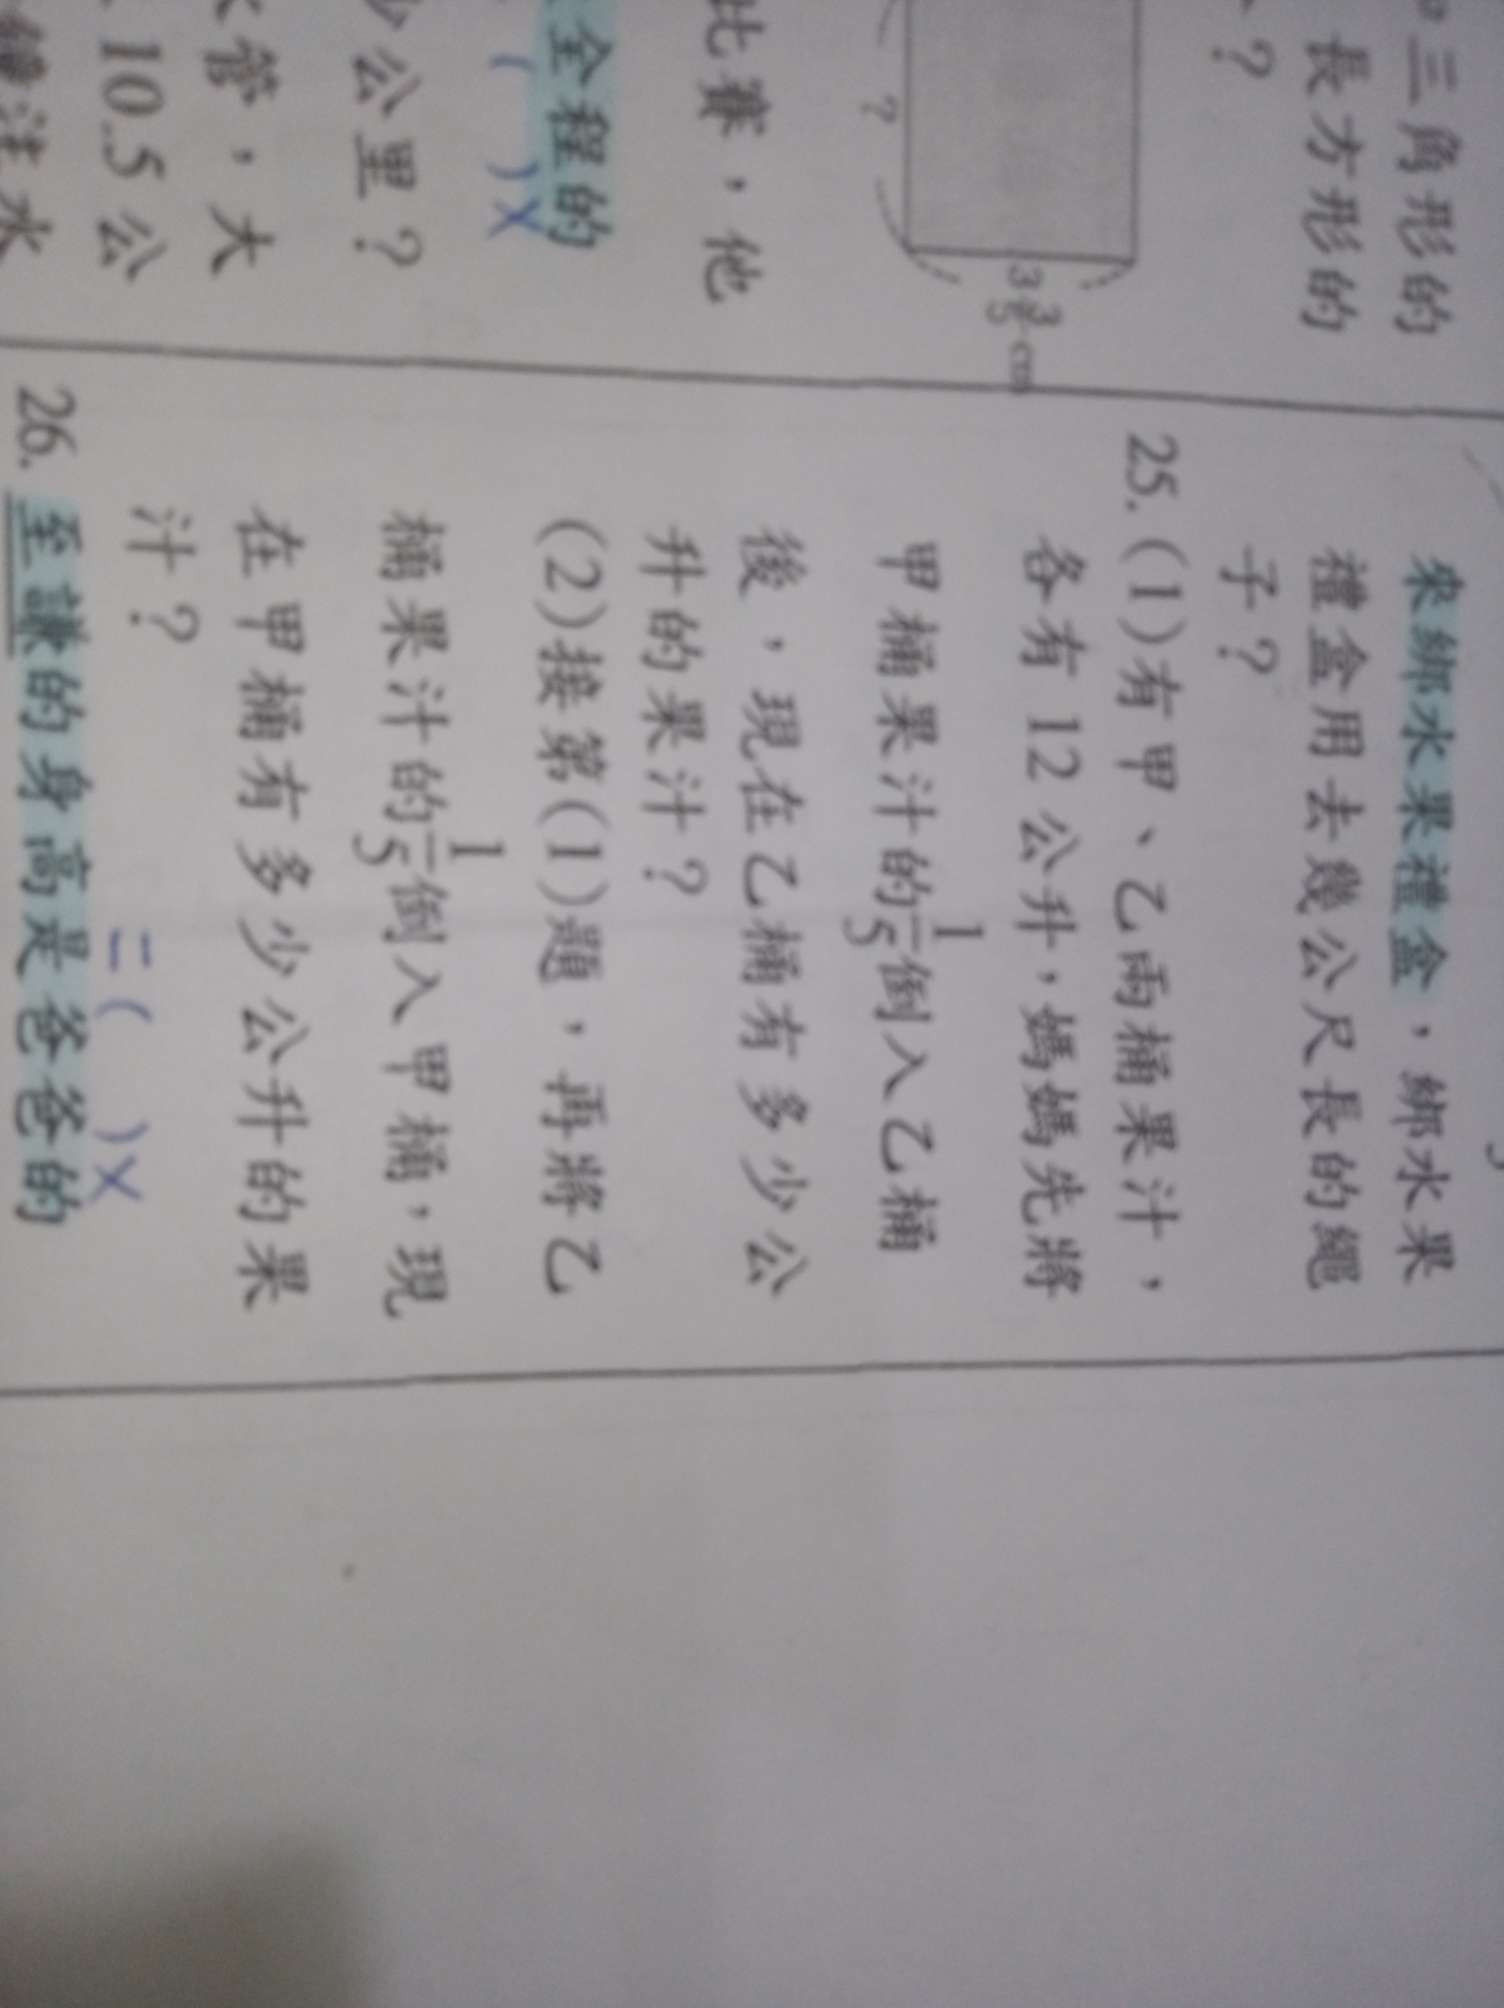 三角形的
長方形的
?
?
3 3/5 cm
比賽，他
全程的
( )×
少公里?
水管，大
10.5 公
注水
來綁水果禮盒，綁水果
禮盒用去幾公尺長的繩
子?
25.(1)有甲、乙兩桶果汁，
各有12公升，媽媽先將
甲桶果汁的1/5倒入乙桶
後，現在乙桶有多少公
升的果汁?
(2)接第(1)題，再將乙
桶果汁的1/5倒入甲桶，現
在甲桶有多少公升的果
汁?
=( )×
26.至謙的身高是爸爸的